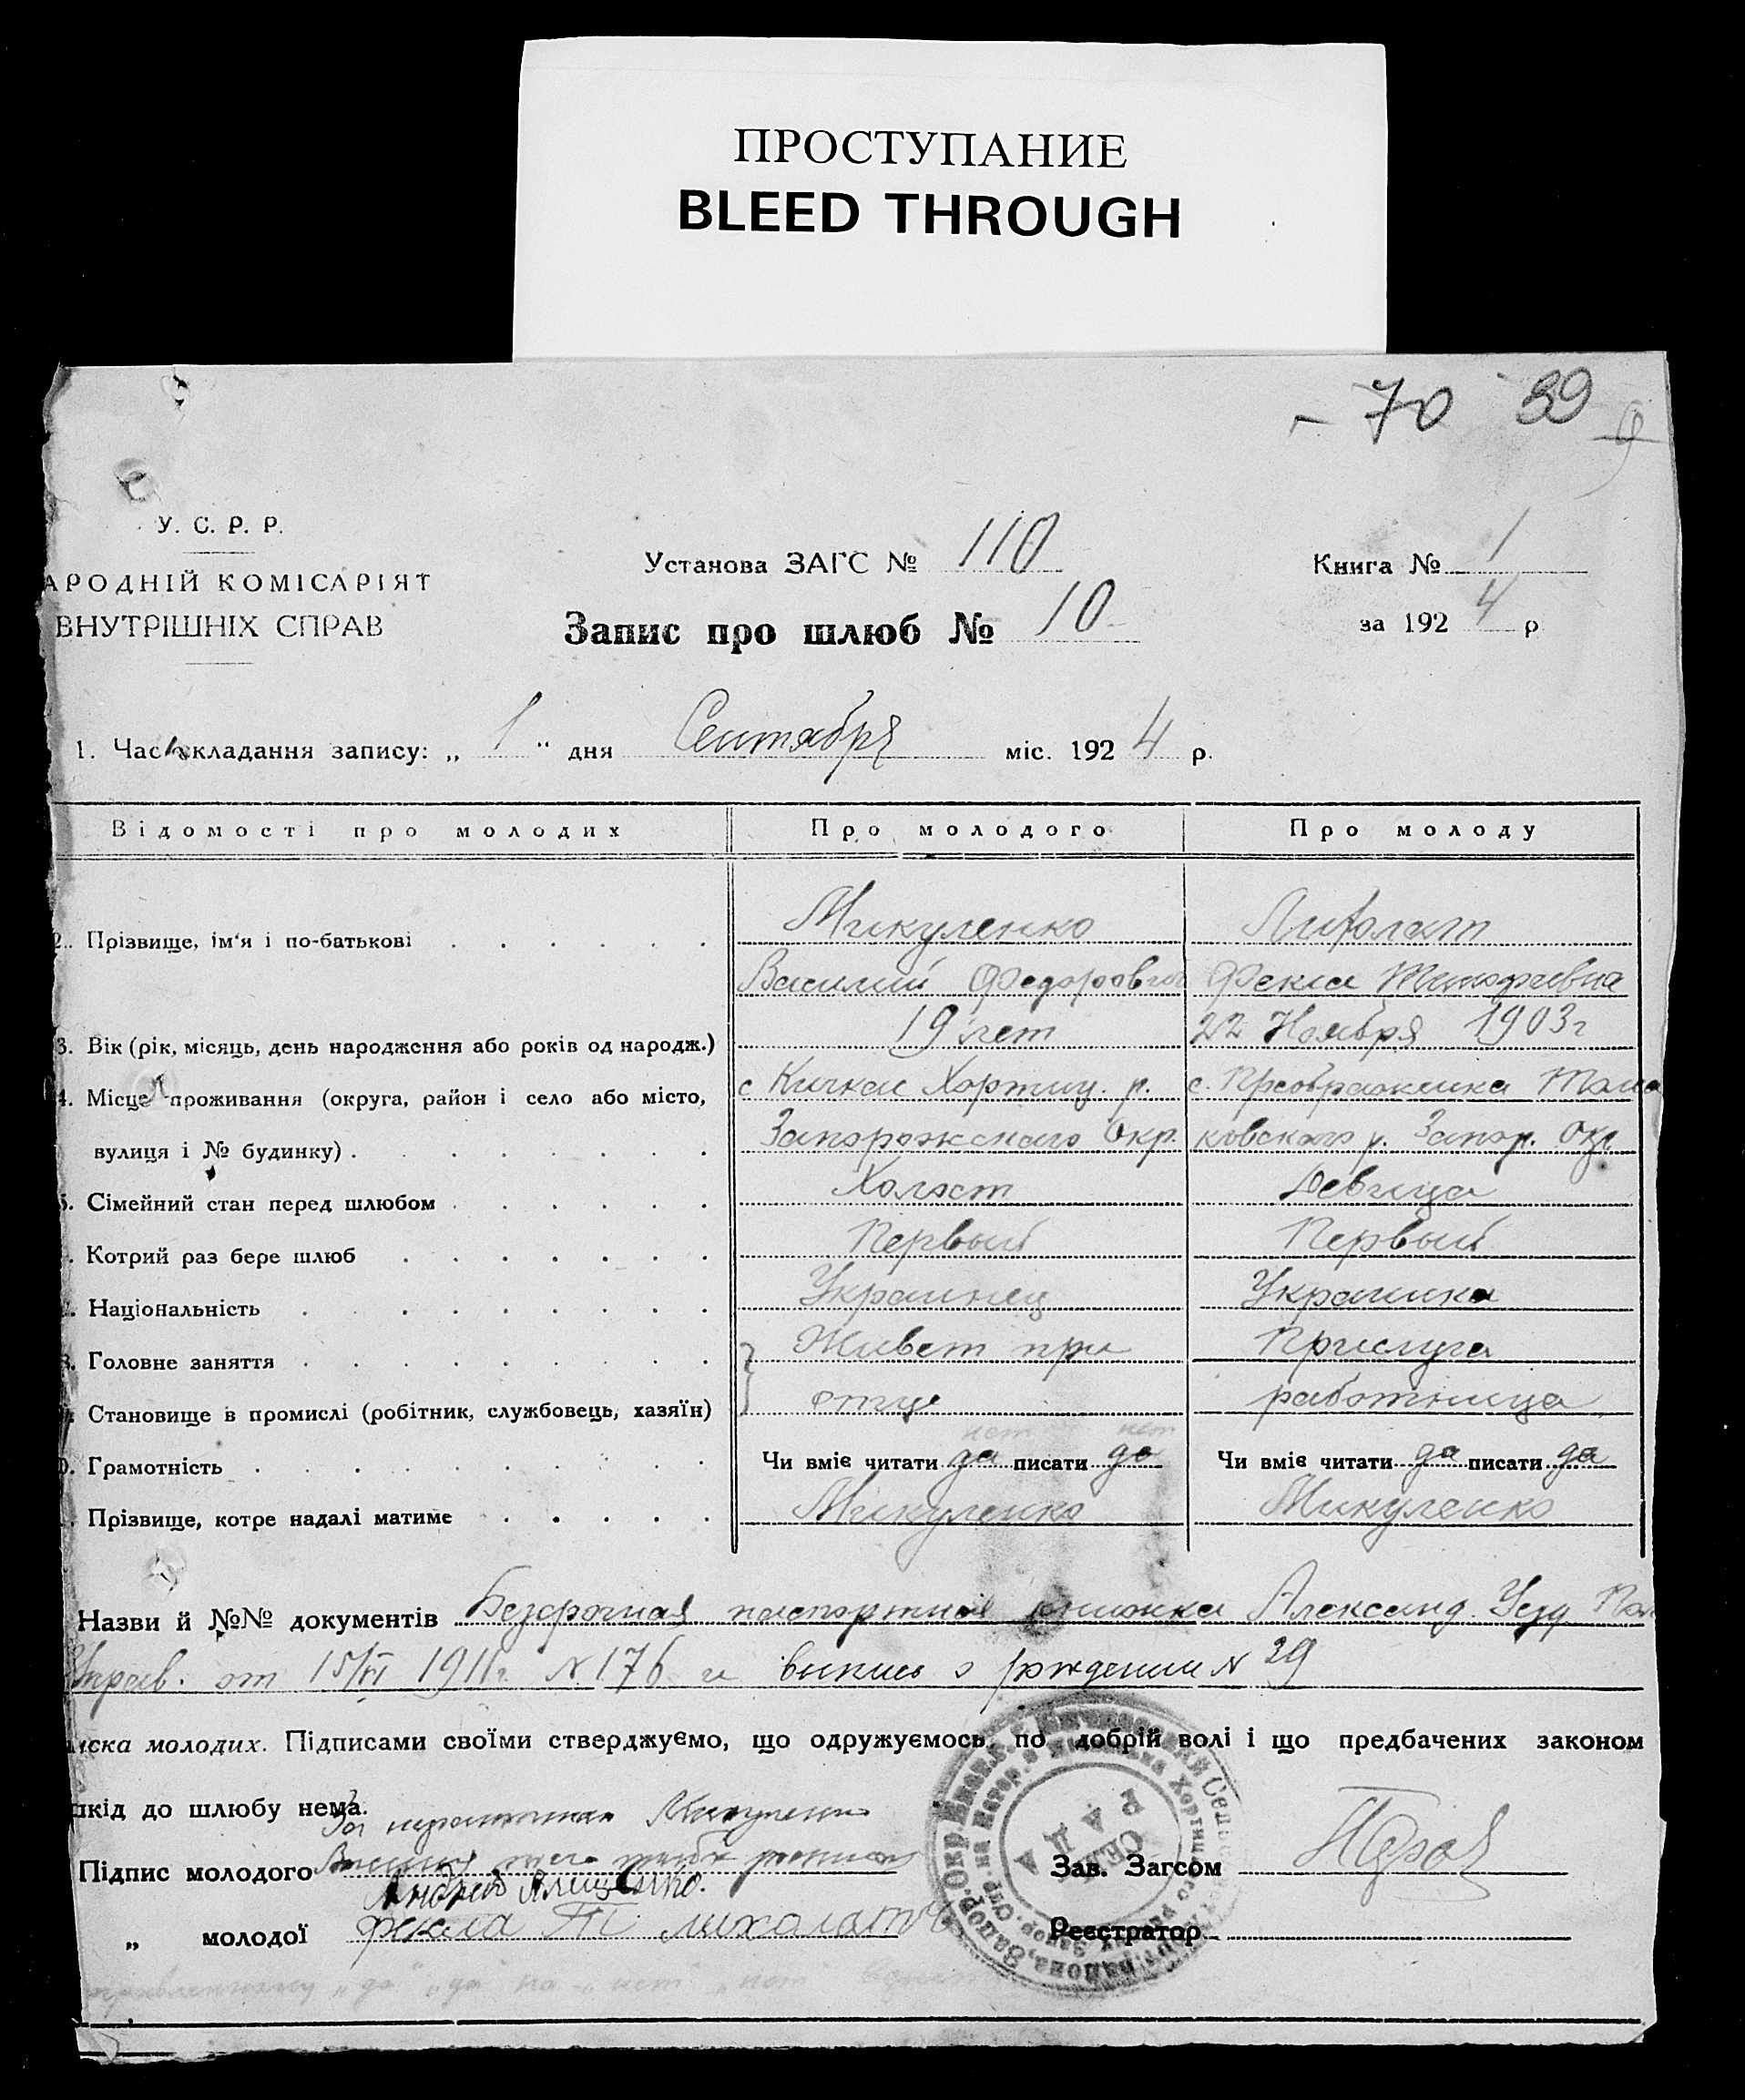 ПРОСТУПАНИЕ
BLEED THROUGH
70 39
У. С. Р. Р.
АРОДНІЙ КОМІСАРІЯТ
ВНУТРІШНІХ СПРАВ
Установа ЗАГС № 110
Запис про шлюб № 10
Книга № 1
за 1924 р
1. Час складання запису: „ 1 " дня Сентября міс. 1924 р.
Відомості про молодих Про молодого Про молоду
2. Прізвище, ім'я і по-батькові Микуленко
Василий Федорович Фекла Тимофеевна
3. Вік (рік, місяць, день народження або років од народж.) 19 лет 22 Ноября 1903 г
4. Місце проживання (округа, район і село або місто, с Кичкас Хортиц. р. с. Преображенка Тома
вулиця і № будинку) Запорожского Окр. ковского р. Запор. Окр
5. Сімейний стан перед шлюбом Холост Девица
. Котрий раз бере шлюб Первый Первый
. Національність Украинец Украинка
8. Головне заняття Живет при Прислуга
Становище в промислі (робітник, службовець, хазяїн) отце работница
0. Грамотність нет нет Чи вміє читати да писати да Чи вміє читати да писати да
Прізвище, котре надалі матиме Микуленко Микуленко
Назви й №№ документів Безсрочная паспортная книжка Александ. Уезд Пол
Управ. от 15/VI 1911 г. № 176 и выпись о рождении № 29
иска молодих. Підписами своїми стверджуємо, що одружуємось по добрій волі і що предбачених законом
шкід до шлюбу нема.
За неграмотного
Підпис молодого
Андрей
„ молодої Фекла
СЕЛ
РАДА
Зав. Загсом
Реєстратор
„да" „да" на „нет" „нет"